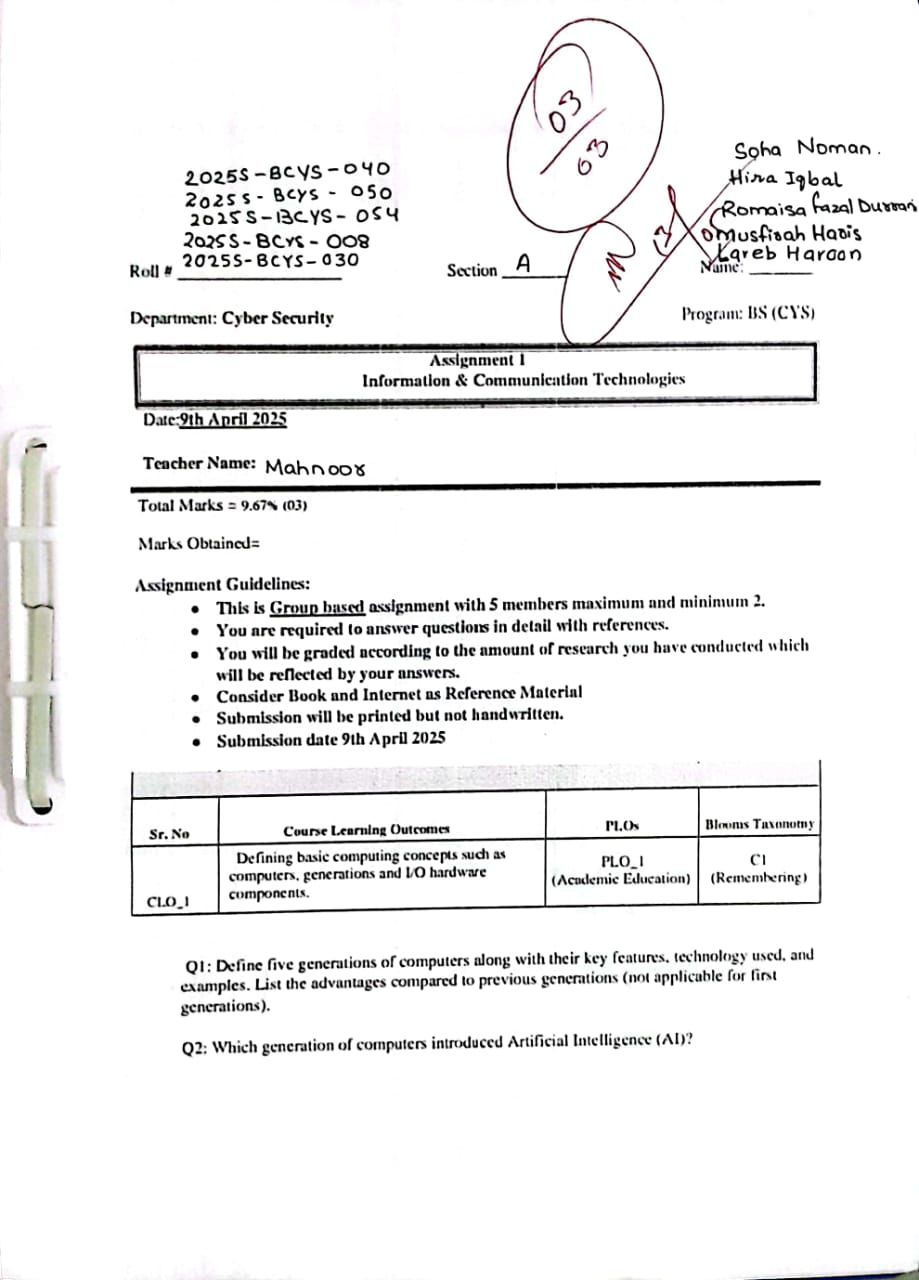 03
03
2025S-BCYS-040
2025S-BCYS-050
2025S-BCYS-054
2025S-BCYS-008
Roll # 2025S-BCYS-030
Section A
Soha Noman.
Hira Iqbal
Romaisa Fazal Durrani
Musfirah
Lareb Haroon
Name:
Department: Cyber Security
Program: BS (CYS)
Assignment 1
Information & Communication Technologies
Date:9th April 2025
Teacher Name: Mahnoor
Total Marks = 9.67% (03)
Marks Obtained=
Assignment Guidelines:
• This is Group based assignment with 5 members maximum and minimum 2.
• You are required to answer questions in detail with references.
• You will be graded according to the amount of research you have conducted which
will be reflected by your answers.
• Consider Book and Internet as Reference Material
• Submission will be printed but not handwritten.
• Submission date 9th April 2025
Sr. No Course Learning Outcomes PLOs Blooms Taxonomy
CLO_1 Defining basic computing concepts such as
computers, generations and I/O hardware
components.
PLO_1
(Academic Education)
C1
(Remembering)
Q1: Define five generations of computers along with their key features, technology used, and
examples. List the advantages compared to previous generations (not applicable for first
generations).
Q2: Which generation of computers introduced Artificial Intelligence (AI)?